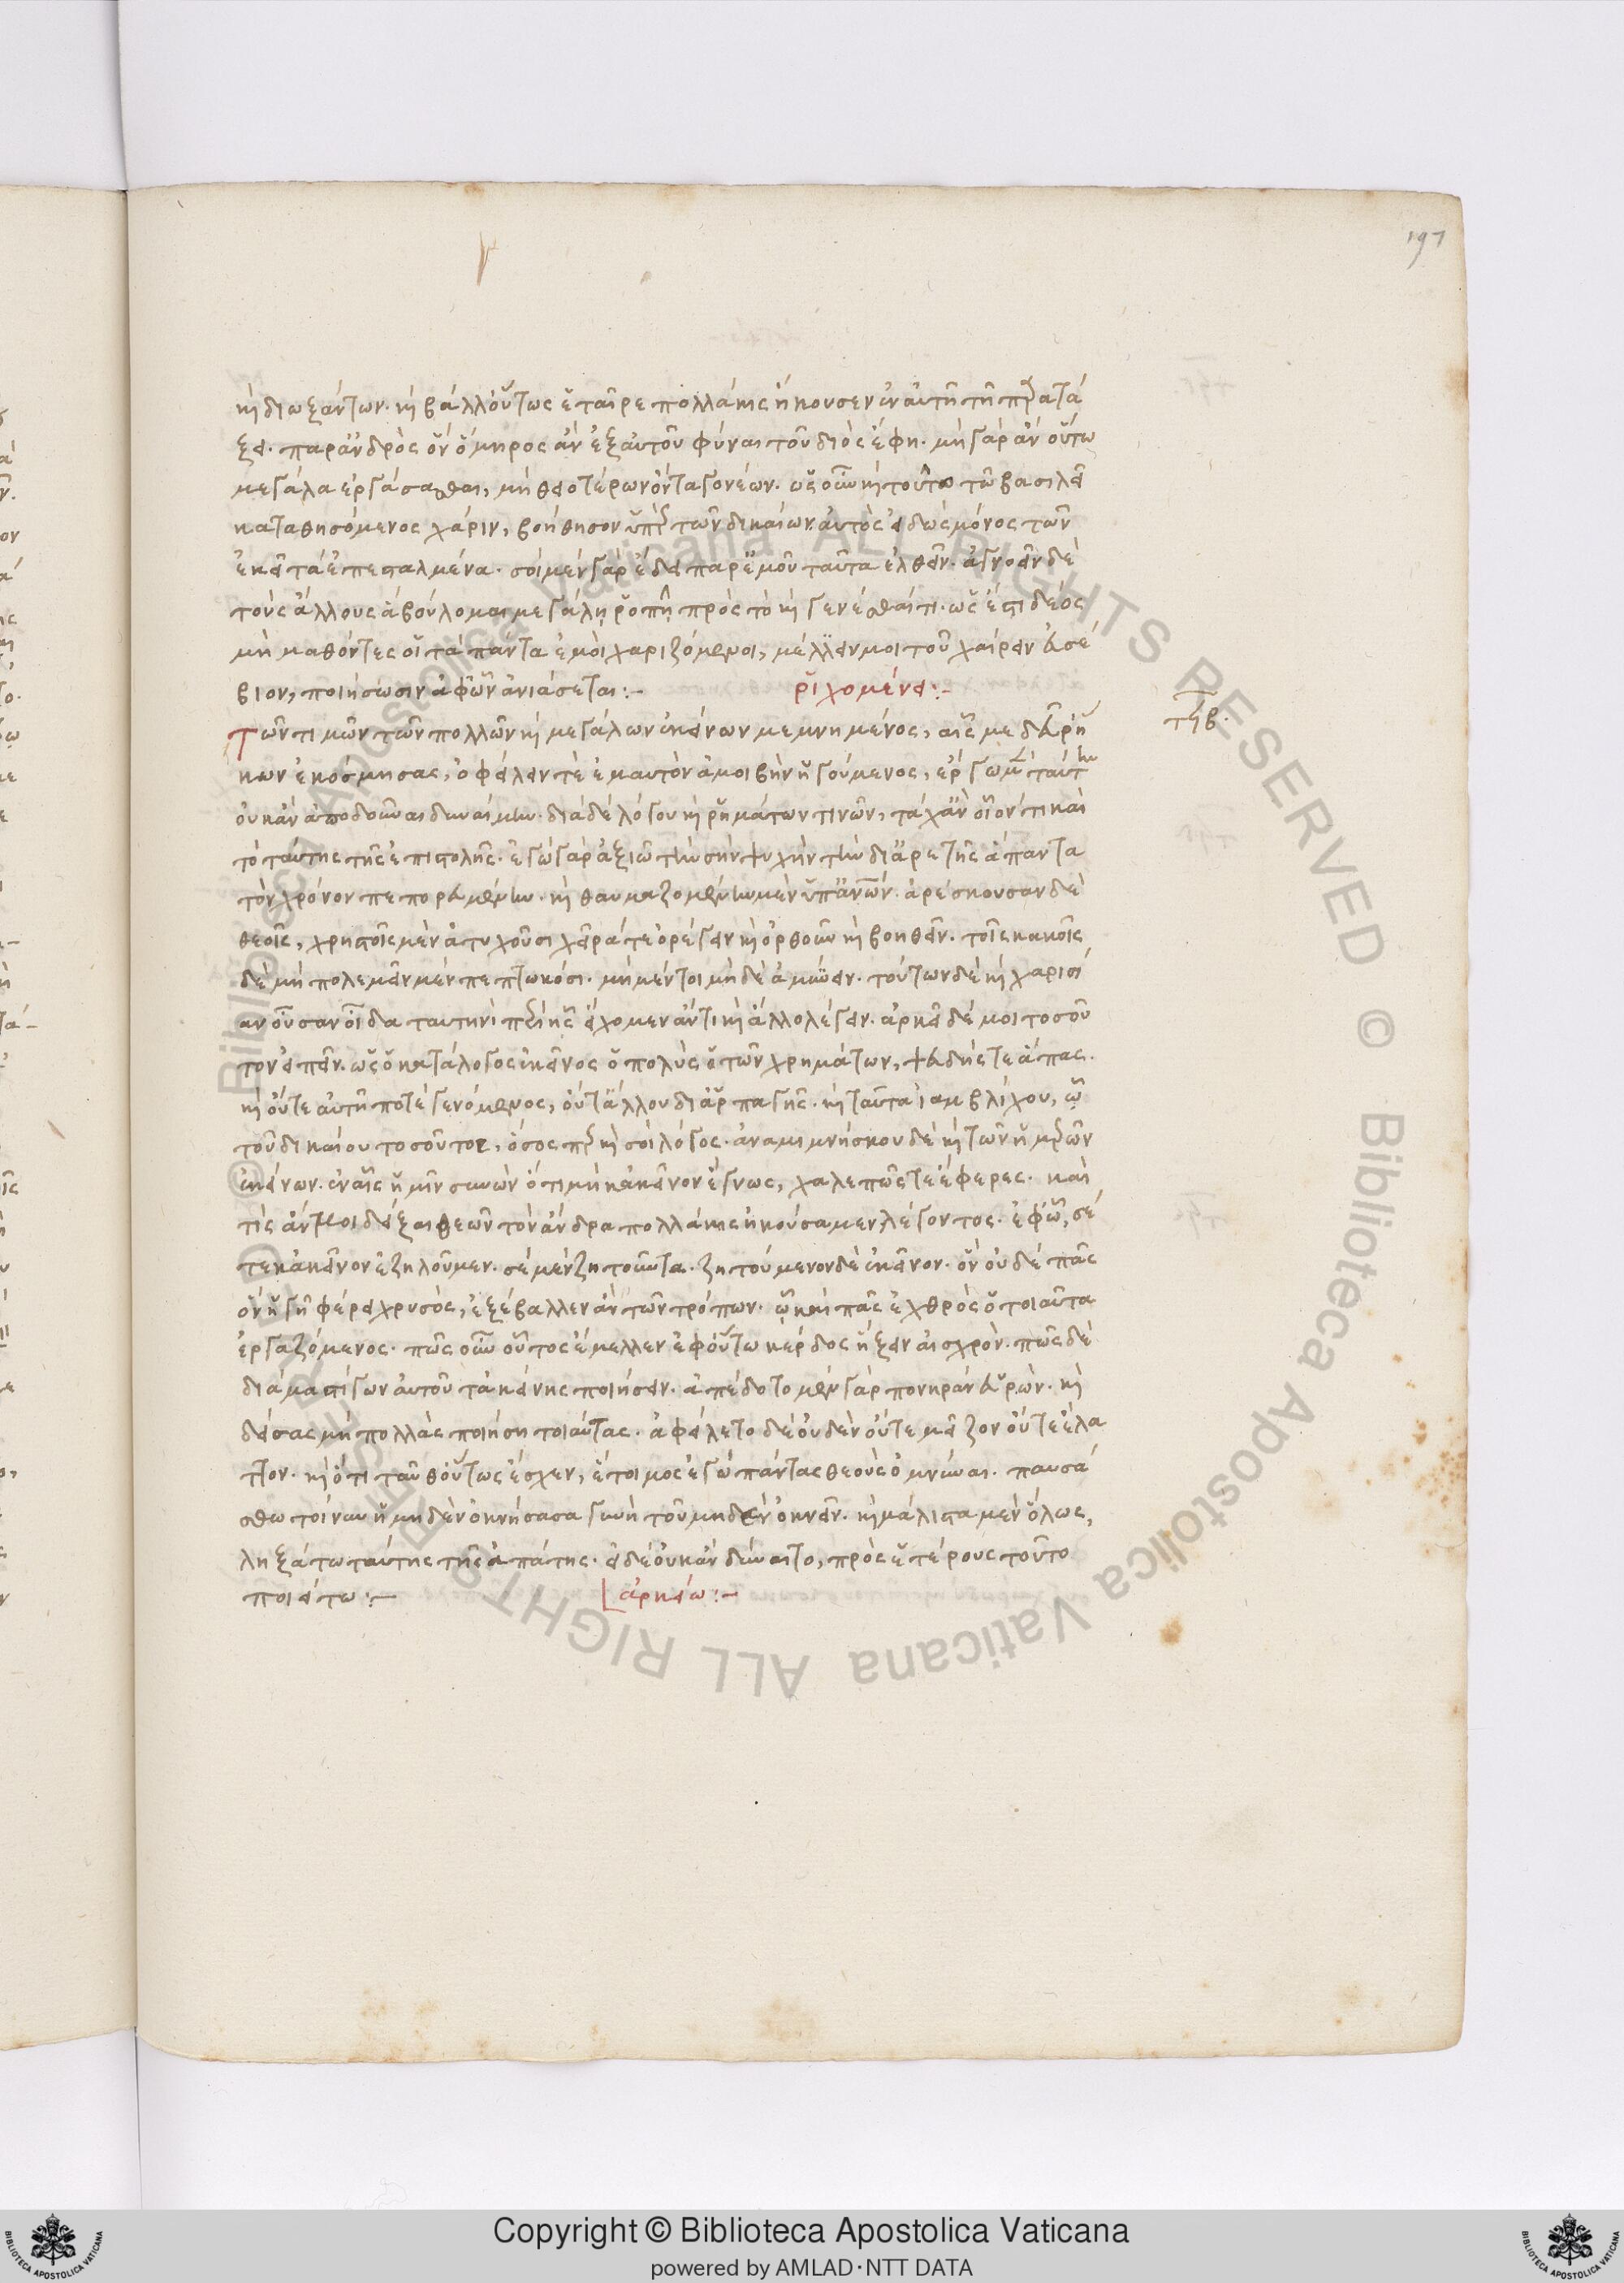 197
καὶ διωξάντων. καὶ βάλλ' οὕτως ἑταῖρε πολλάκις ἤκουσεν ἐν αὐτῇ τῇ παρατά
ξει. παρ' ἀνδρὸς ὃν ὅμηρος ἂν ἐξ αὐτοῦ φῦναι τοῦ διὸς ἔφη. μὴ γὰρ ἂν οὕτω
μεγάλα ἐργάσασθαι, μὴ θειοτέρων ὄντα γονέων. ὡς οὖν καὶ τοῦτο τῷ βασιλεῖ
καταθησόμενος χάριν, βοήθησον ὑπὲρ τῶν δικαίων αὐτὸς εἰδὼς μόνος τῶν
ἐκεῖ τὰ ἐπεσταλμένα. σοὶ μὲν γὰρ ἔδει παρ' ἐμοῦ ταῦτα ἐλθεῖν. ἀγνοεῖν δὲ
τοὺς ἄλλους ἃ βούλομαι μεγάλη ῥοπῇ πρὸς τὸ καὶ γενέσθαι τι. ὡς ἔστι δέος
μὴ μαθόντες οἱ τὰ πάντα ἐμοὶ χαριζόμενοι, μέλλειν μοι τοῦ χαίρειν εὐσέ
βιον, ποιήσωσιν ἀφ' ὧν ἀνιάσεται:-
ῥιχομένει:-
τηβ.
Τῶν τιμῶν τῶν πολλῶν καὶ μεγάλων ἐκείνων μεμνημένος, αἷς με δεῦρ' ἥ
κων ἐκόσμησας, ὀφείλειν τὲ ἐμαυτὸν ἀμοιβὴν ἡγούμενος, ἔργω μὲν ταύτην
οὐκ ἂν ἀποδοῦναι δυναίμην. διὰ δὲ λόγου καὶ ῥημάτων τινῶν, τάχ' ἂν οἷόν τι καὶ
τὸ ταύτης τῆς ἐπιστολῆς. ἐγὼ γὰρ ἀξιῶ τὴν σὴν ψυχὴν τὴν δι' ἀρετῆς ἅπαντα
τὸν χρόνον πεπορευμένην. καὶ θαυμαζομένην μὲν ὑπ' ἀνων. ἀρέσκουσαν δὲ
θεοῖς, χρηστοῖς μὲν ἀτυχοῦσι χεῖρά τε ὀρέγειν καὶ ὀρθοῦν καὶ βοηθεῖν. τοῖς κακοῖς
δὲ μὴ πολεμεῖν μὲν πεπτωκόσι. μὴ μέντοι μηδὲ ἀμύνειν. τούτων δὲ καὶ χαρισί
αν οὖσαν οἶδα ταυτηνὶ περὶ ἧς εἴχομεν ἄν τι καὶ ἄλλο λέγειν. ἀρκεῖ δέ μοι τοσοῦ
τον εἰπεῖν. ὡς ὁ κατάλογος ἐκεῖνος ὁ πολὺς ὁ τῶν χρημάτων, ψευδής τε ἅπας.
καὶ οὔτε αὐτῇ ποτὲ γενόμενος, οὔτ' ἄλλου δι' ἁρπαγῆς. καὶ ταῦτα ἰαμβλίχου, ᾧ
τοῦ δικαίου τοσοῦτος, ὅσος περ καὶ σοὶ λόγος. ἀναμιμνήσκου δὲ καὶ τῶν ἡμερῶν
ἐκείνων. ἐν αἷς ἡμῖν συνὼν ὅτι μὴ κἀκεῖνον ἔγνως, χαλεπῶς τε ἔφερες. καὶ
τίς ἄν μοι δείξαι θεῶν τὸν ἄνδρα πολλάκις ἠκούσαμεν λέγοντος. ἐφ' ᾧ, σέ
τε κἀκεῖνον ἐζηλοῦμεν. σὲ μὲν ζητοῦντα. ζητούμενον δὲ ἐκεῖνον. ὃν οὐδὲ πᾶς
ὃν ἡ γῆ φέρει χρυσὸς, ἐξέβαλλεν ἂν τῶν τρόπων. ᾧ καὶ πᾶς ἐχθρὸς ὁ τοιαῦτα
ἐργαζόμενος. πῶς οὖν οὗτος ἔμελλεν ἐφ' οὕτω κέρδος ἥξειν αἰσχρὸν. πῶς δὲ
διὰ μαστίγων αὐτοῦ τὰ κείνης ποιήσειν. ἀπέδοτο μὲν γὰρ πονηρὰν εὑρών. καὶ
δείσας μὴ πολλὰς ποιήσῃ τοιαύτας. ἀφείλετο δὲ οὐδὲν οὔτε μεῖζον οὔτε ἔλα
ττον. καὶ ὅτι ταῦθ' οὕτως ἔσχεν, ἕτοιμος ἐγὼ πάντας θεοὺς ὀμνύναι. παυσά
σθω τοίνυν ἡ μηδὲν ὀκνήσασα γυνὴ τοῦ μηδὲν ὀκνεῖν. καὶ μάλιστα μὲν ὅλως,
ληξάτω ταύτης τῆς ἀπάτης. εἰ δὲ οὐκ ἂν δύναιτο, πρὸς ἑτέρους τοῦτο
ποιείτω:-
ἀρκείω:-
Copyright © Biblioteca Apostolica Vaticana
powered by AMLAD·NTT DATA